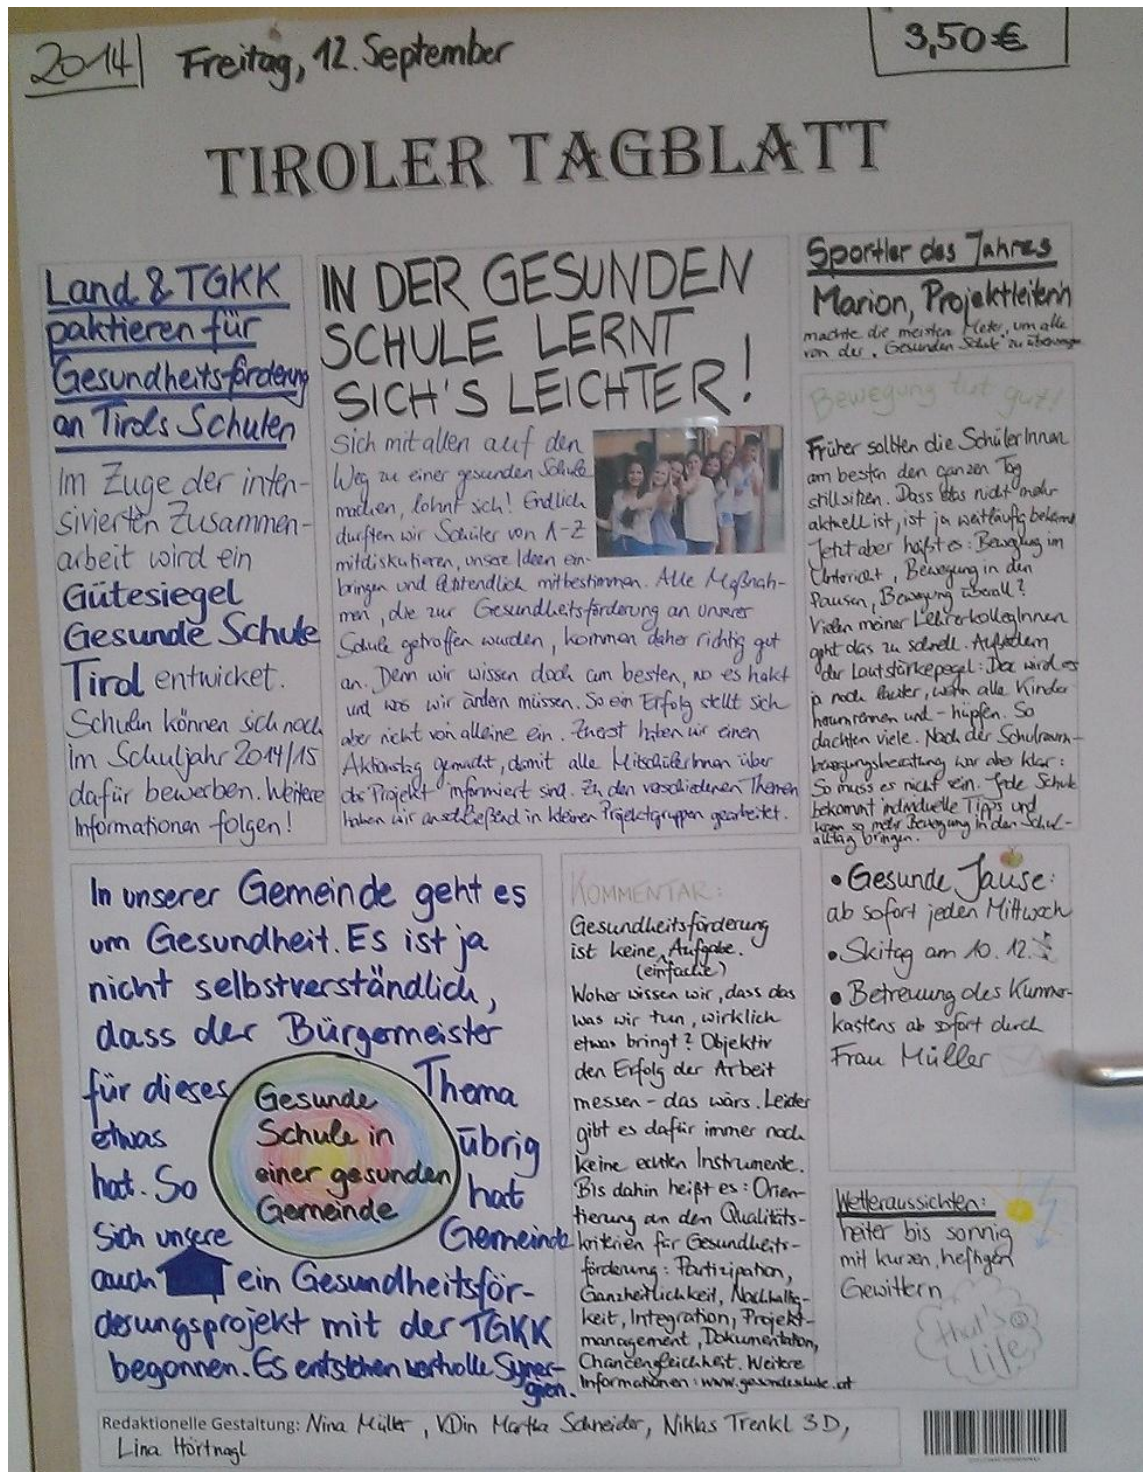 2014
Freitag, 12. September
3,50 €
TIROLER TAGBLATT
Land & TGKK
paktieren für
Gesundheitsförderung
an Tirols Schulen
Im Zuge der inten-
sivierten Zusammen-
arbeit wird ein
Gütesiegel
Gesunde Schule
Tirol entwickelt.
Schulen können sich noch
im Schuljahr 2014/15
dafür bewerben. Weitere
Informationen folgen!
IN DER GESUNDEN
SCHULE LERNT
SICH'S LEICHTER!
Sich mit allen auf den
Weg zu einer gesunden Schule
machen, lohnt sich! Endlich
durften wir Schüler von A-Z
mitdiskutieren, unsere Ideen ein-
bringen und letztendlich mitbestimmen. Alle Maßnah-
men, die zur Gesundheitsförderung an unserer
Schule getroffen wurden, kommen daher richtig gut
an. Denn wir wissen doch am besten, wo es hakt
und was wir ändern müssen. So ein Erfolg stellt sich
aber nicht von alleine ein. Zuerst haben wir einen
Aktionstag gemacht, damit alle MitschülerInnen über
das Projekt informiert sind. Zu den verschiedenen Themen
haben wir anschließend in kleinen Projektgruppen gearbeitet.
Sportler des Jahres
Marion, Projektleiterin
machte die meisten Meter, um alle
von der "Gesunden Schule" zu überzeugen
Bewegung tut gut!
Früher sollten die SchülerInnen
am besten den ganzen Tag
stillsitzen. Dass das nicht mehr
aktuell ist, ist ja weitläufig bekannt
Jetzt aber heißt es: Bewegung im
Unterricht, Bewegung in den
Pausen, Bewegung überall?
Vielen meiner LehrerkollegInnen
geht das zu schnell. Außerdem
der Lautstärkepegel: Der wird es
ja noch lauter, wenn alle Kinder
herumrennen und -hüpfen. So
dachten viele. Nach der Schulraum-
bewegungsberatung war aber klar:
So muss es nicht sein. Jede Schule
bekommt individuelle Tipps und
kann so mehr Bewegung in den Schul-
alltag bringen.
In unserer Gemeinde geht es
um Gesundheit. Es ist ja
nicht selbstverständlich,
dass der Bürgermeister
für dieses Thema
etwas übrig
hat. So hat
sich unsere Gemeinde
auch ein Gesundheitsför-
derungsprojekt mit der TGKK
begonnen. Es entstehen wertvolle Syner-
gien.
Gesunde
Schule in
einer gesunden
Gemeinde
KOMMENTAR:
Gesundheitsförderung
ist keine Aufgabe.
(einfache)
Woher wissen wir, dass das
was wir tun, wirklich
etwas bringt? Objektiv
den Erfolg der Arbeit
messen - das wärs. Leider
gibt es dafür immer noch
keine echten Instrumente.
Bis dahin heißt es: Orien-
tierung an den Qualitäts-
kriterien für Gesundheits-
förderung: Partizipation,
Ganzheitlichkeit, Nachhaltig-
keit, Integration, Projekt-
management, Dokumentation,
Chancengleichheit. Weitere
Informationen: www.gesundeschule.at
• Gesunde Jause:
ab sofort jeden Mittwoch
• Skitag am 10. 12.
• Betreuung des Kummer-
kastens ab sofort durch
Frau Müller
Wetteraussichten:
heiter bis sonnig
mit kurzen, heftigen
Gewittern
that's
life
Redaktionelle Gestaltung: Nina Müller, VDin Martha Schneider, Niklas Trenkl 3D,
Lina Hörtnagl